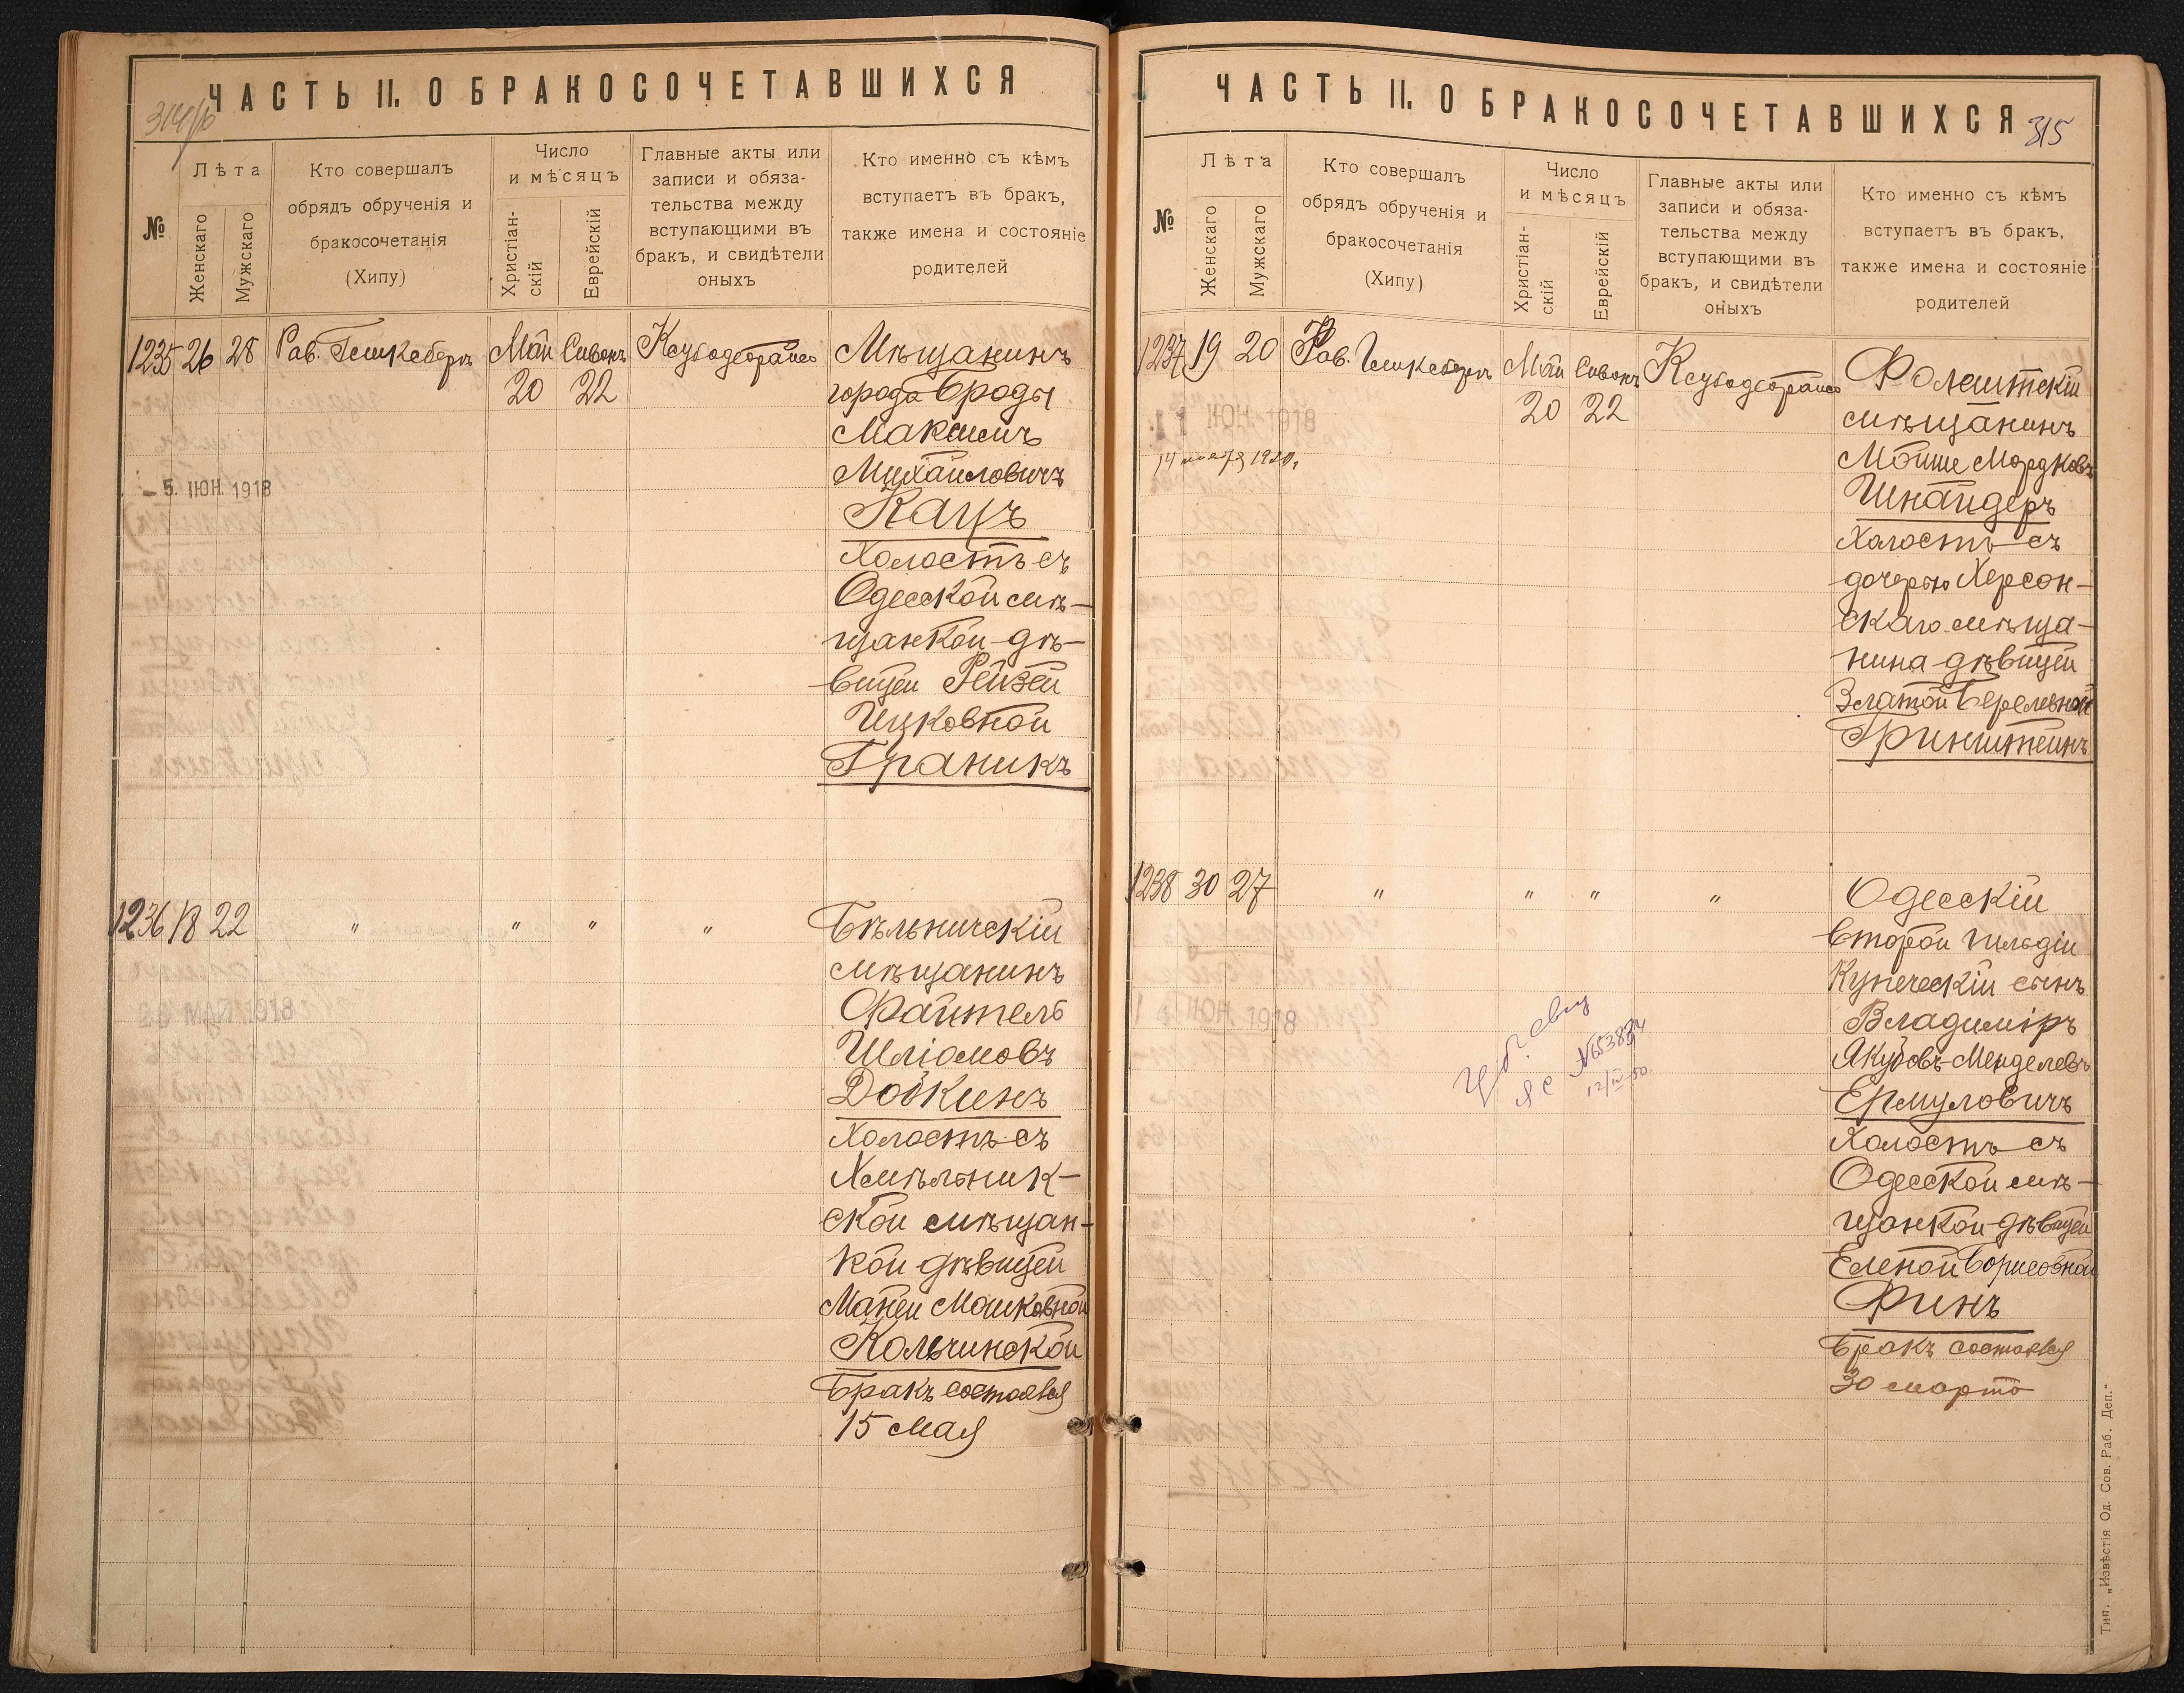 ЧАСТЬ II. О БРАКОСОЧЕТАВШИХСЯ
№
Лѣта
Женскаго
Мужскаго
Кто совершалъ
обрядъ обрученія и
бракосочетанія
(Хипу)
Число
и мѣсяцъ
Христіан-
скій
Еврейскій
Главные акты или
записи и обяза-
тельства между
вступающими въ
бракъ, и свидѣтели
оныхъ
Кто именно съ кѣмъ
вступаетъ въ бракъ,
также имена и состояніе
родителей
1235 26 28 Рав. Май Сивонъ
20 22
Мѣщанинъ
города Броды
Максимъ
Михайловичъ
Кацъ
Холостъ съ
Одесской мѣ-
щанкой дѣ-
вицей Рейзей
Ицковной
Граникъ
- 5. ІЮН. 1918
1236 18 22 " " " "
Бѣльничскій
мѣщанинъ
Файтель
Шліомовъ
Добкинъ
Холостъ съ
Хмѣльник-
ской мѣщан-
кой дѣвицей
Маней Мошковной
Кольчинской
Бракъ состоялся
15 мая
ЧАСТЬ II. О БРАКОСОЧЕТАВШИХСЯ
315
№
Лѣта
Женскаго
Мужскаго
Кто совершалъ
обрядъ обрученія и
бракосочетанія
(Хипу)
Число
и мѣсяцъ
Христіан-
скій
Еврейскій
Главные акты или
записи и обяза-
тельства между
вступающими въ
бракъ, и свидѣтели
оныхъ
Кто именно съ кѣмъ
вступаетъ въ бракъ,
также имена и состояніе
родителей
1237 19 20 Рав. Май Сивонъ
20 22
11 ІЮН. 1918
Фолештскій
мѣщанинъ
Мойше Мордковъ
Шнайдеръ
Холостъ съ
дочерью Херсон-
скаго мѣща-
нина дѣвицей
Златой Берелевной
Гринштейнъ
1238 30 27 " " " "
ІЮН. 1918
Одесскій
второй гильдіи
Купеческій сынъ
Владиміръ
Якубовъ-Менделевъ
Ермуловичъ
Холостъ съ
Одесской мѣ-
щанкой дѣвицей
Еленой Борисовной
Финъ
Бракъ состоялся
30 марта
Тип. „Извѣстія Од. Сов. Раб. Деп."